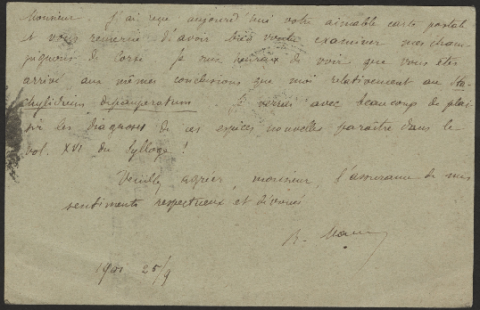 Monsieur. J'ai reçu aujourd'hui votre aimable carte postale
et vous remercie d'avoir bien voulu examiner mes cham-
pignons de Corse. Je suis heureux de voir que vous êtes
arrivé aux mêmes conclusions que moi relativement au Sta-
chylidium depauperatum. Je verrai avec beaucoup de plai-
sir les diagnoses de ces espèces nouvelles paraître dans le
vol. XVI du Sylloge !
Veuillez agréer, monsieur, l'assurance de mes
sentiments respectueux et dévoués
R. Maire
1901 25/9